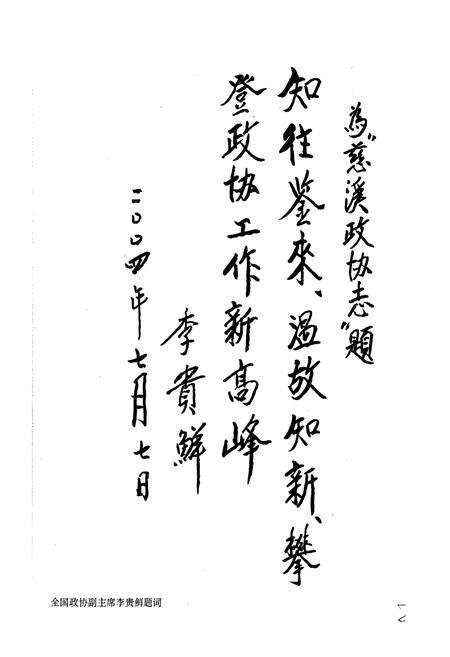 為"慈溪政协志"題
知往鉴來、温故知新、攀
登政协工作新高峰
李貴鮮
二〇〇四年七月七日
全国政协副主席李贵鲜题词